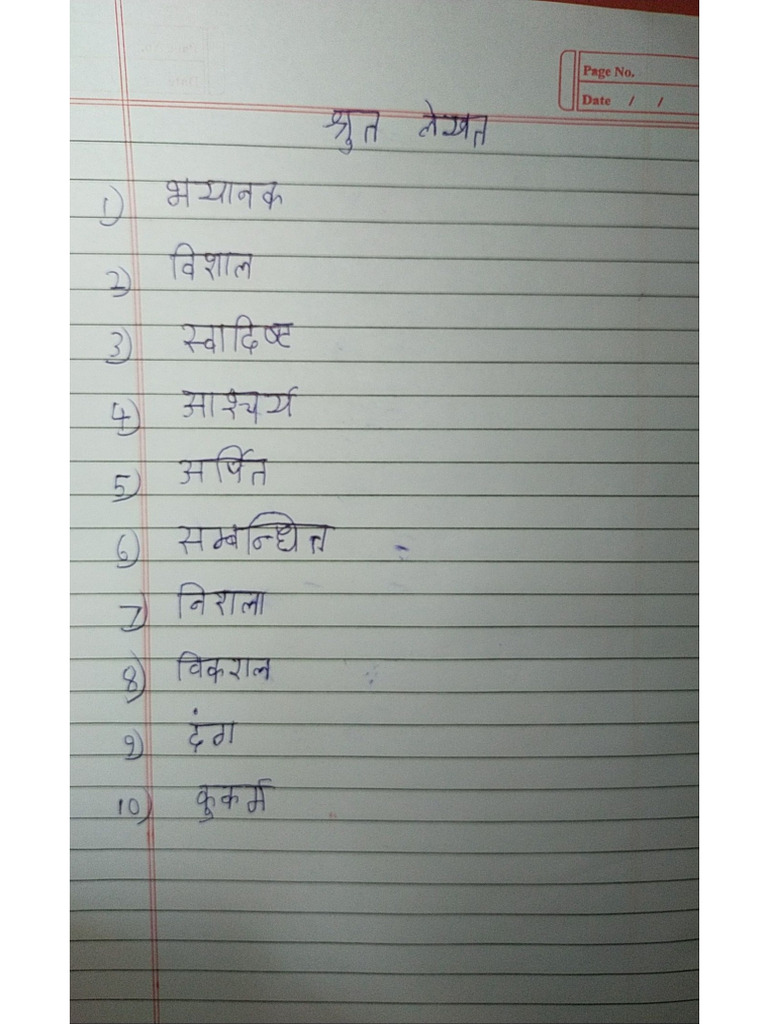 Page No.
Date / /
श्रुत लेखत
1) भयानक
2) विशाल
3) स्वादिष्ट
4) आश्चर्य
5) अर्पित
6) सम्बन्धित
7) निराला
8) विकराल
9) दंग
10) कुकर्म